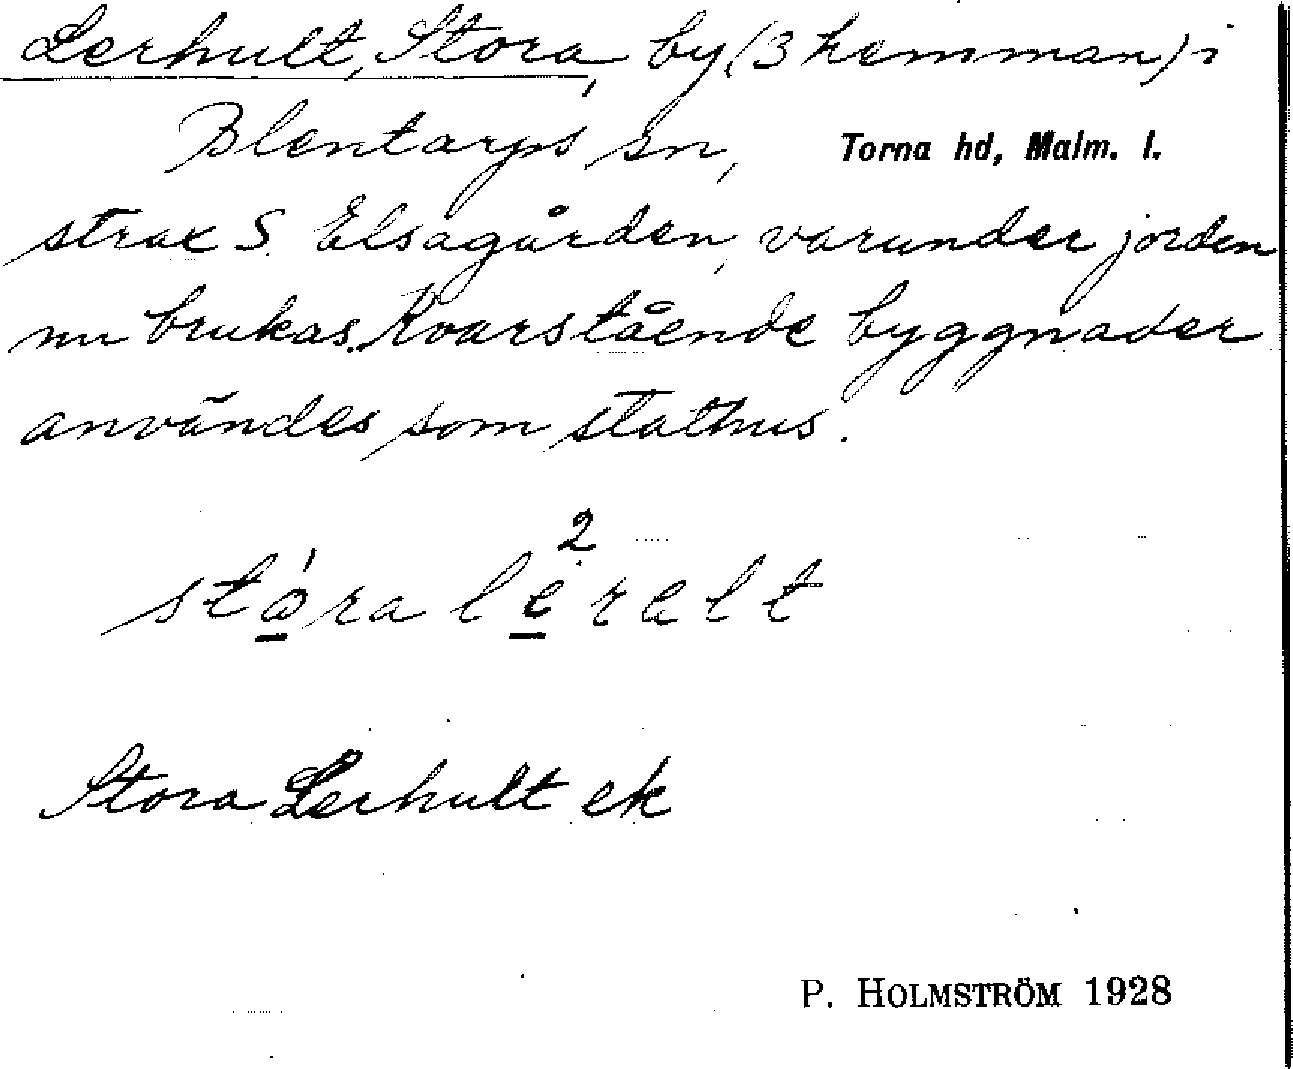 Lerhult, Stora, by (3 hemman) i
Blentarps sn, Torna hd, Malm. l.
strax S. Elsagården, varunder jorden
nu brukas. Kvarstående byggnader
användes som stathus.
stó̠ra le̠²ralt
Stora Lerhult ek
P. HOLMSTRÖM 1928